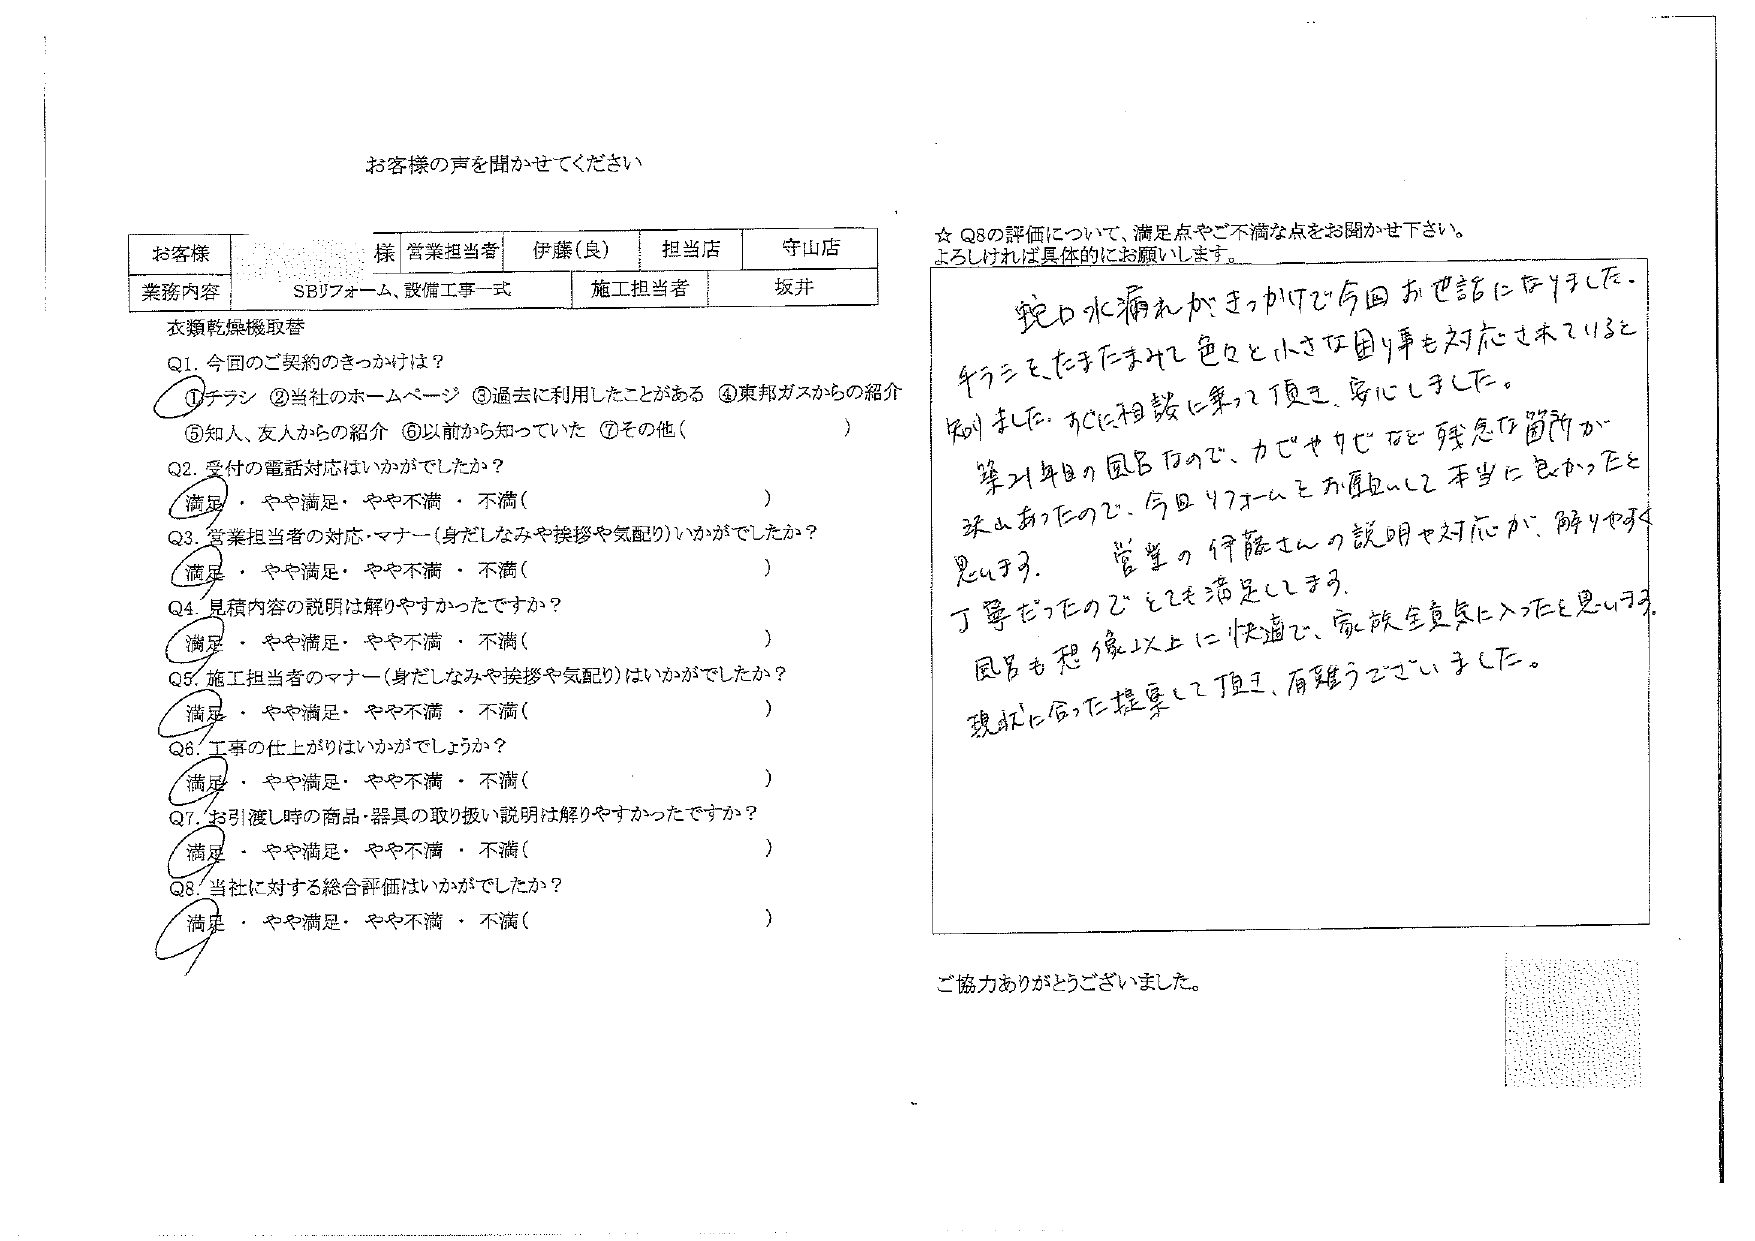 お客様の声を聞かせてください
お客様 様 営業担当者 伊藤(良) 担当店 守山店
業務内容 SBリフォーム、設備工事一式 施工担当者 坂井
衣類乾燥機取替
Q1. 今回のご契約のきっかけは？
①チラシ ②当社のホームページ ③過去に利用したことがある ④東邦ガスからの紹介
⑤知人、友人からの紹介 ⑥以前から知っていた ⑦その他( )
Q2. 受付の電話対応はいかがでしたか？
満足 ・ やや満足・ やや不満 ・ 不満( )
Q3. 営業担当者の対応・マナー(身だしなみや挨拶や気配り)いかがでしたか？
満足 ・ やや満足・ やや不満 ・ 不満( )
Q4. 見積内容の説明は解りやすかったですか？
満足 ・ やや満足・ やや不満 ・ 不満( )
Q5. 施工担当者のマナー(身だしなみや挨拶や気配り)はいかがでしたか？
満足 ・ やや満足・ やや不満 ・ 不満( )
Q6. 工事の仕上がりはいかがでしょうか？
満足 ・ やや満足・ やや不満 ・ 不満( )
Q7. お引渡し時の商品・器具の取り扱い説明は解りやすかったですか？
満足 ・ やや満足・ やや不満 ・ 不満( )
Q8. 当社に対する総合評価はいかがでしたか？
満足 ・ やや満足・ やや不満 ・ 不満( )
☆ Q8の評価について、満足点やご不満な点をお聞かせ下さい。
よろしければ具体的にお願いします。
蛇口水漏れがきっかけで今回お世話になりました.
チラシを、たまたまみて色々と小さな困り事も対応されていると
知りました. すぐに相談に乗って頂き、安心しました。
築21年目の風呂なので、カビやサビなど残念な箇所が
沢山あったので、今回リフォームをお願いして本当に良かったと
思います. 営業の伊藤さんの説明や対応が、解りやすく
丁寧だったのでとても満足してます.
風呂も想像以上に快適で、家族全員気に入ったと思います.
現状に合った提案して頂き、有難うございました。
ご協力ありがとうございました。